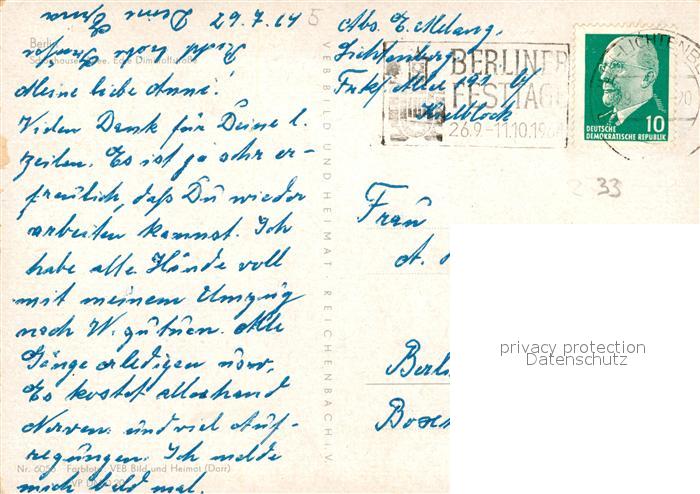 29.7.64
Meine liebe Anni!
Vielen Dank für Deine l.
Zeilen. Es ist ja sehr er-
freulich, daß Du wieder
arbeiten kannst. Ich
habe alle Hände voll
mit meinem Umzug
nach W. zu tuen. Alle
Gänge erledigen usw,
Es kostet allerhand
Nerven und viel Auf-
regungen. Ich melde
mich bald mal.
Recht liebe
Deine Erna
Berlin
Schönhauser Allee, Ecke Dimitroffstraße
Nr. 6056 Farbfoto: VEB Bild und Heimat (Darr)
VEB BILD UND HEIMAT REICHENBACH I. V.
Abs. E. Melang,
Lichtenberg
Frkf. Allee 197
BERLINER
FESTTAGE
26.9.-11.10.1964
LICHTENB
DEUTSCHE
DEMOKRATISCHE REPUBLIK 10
33
Frau
A.
Berli
Boxh
privacy protection
Datenschutz